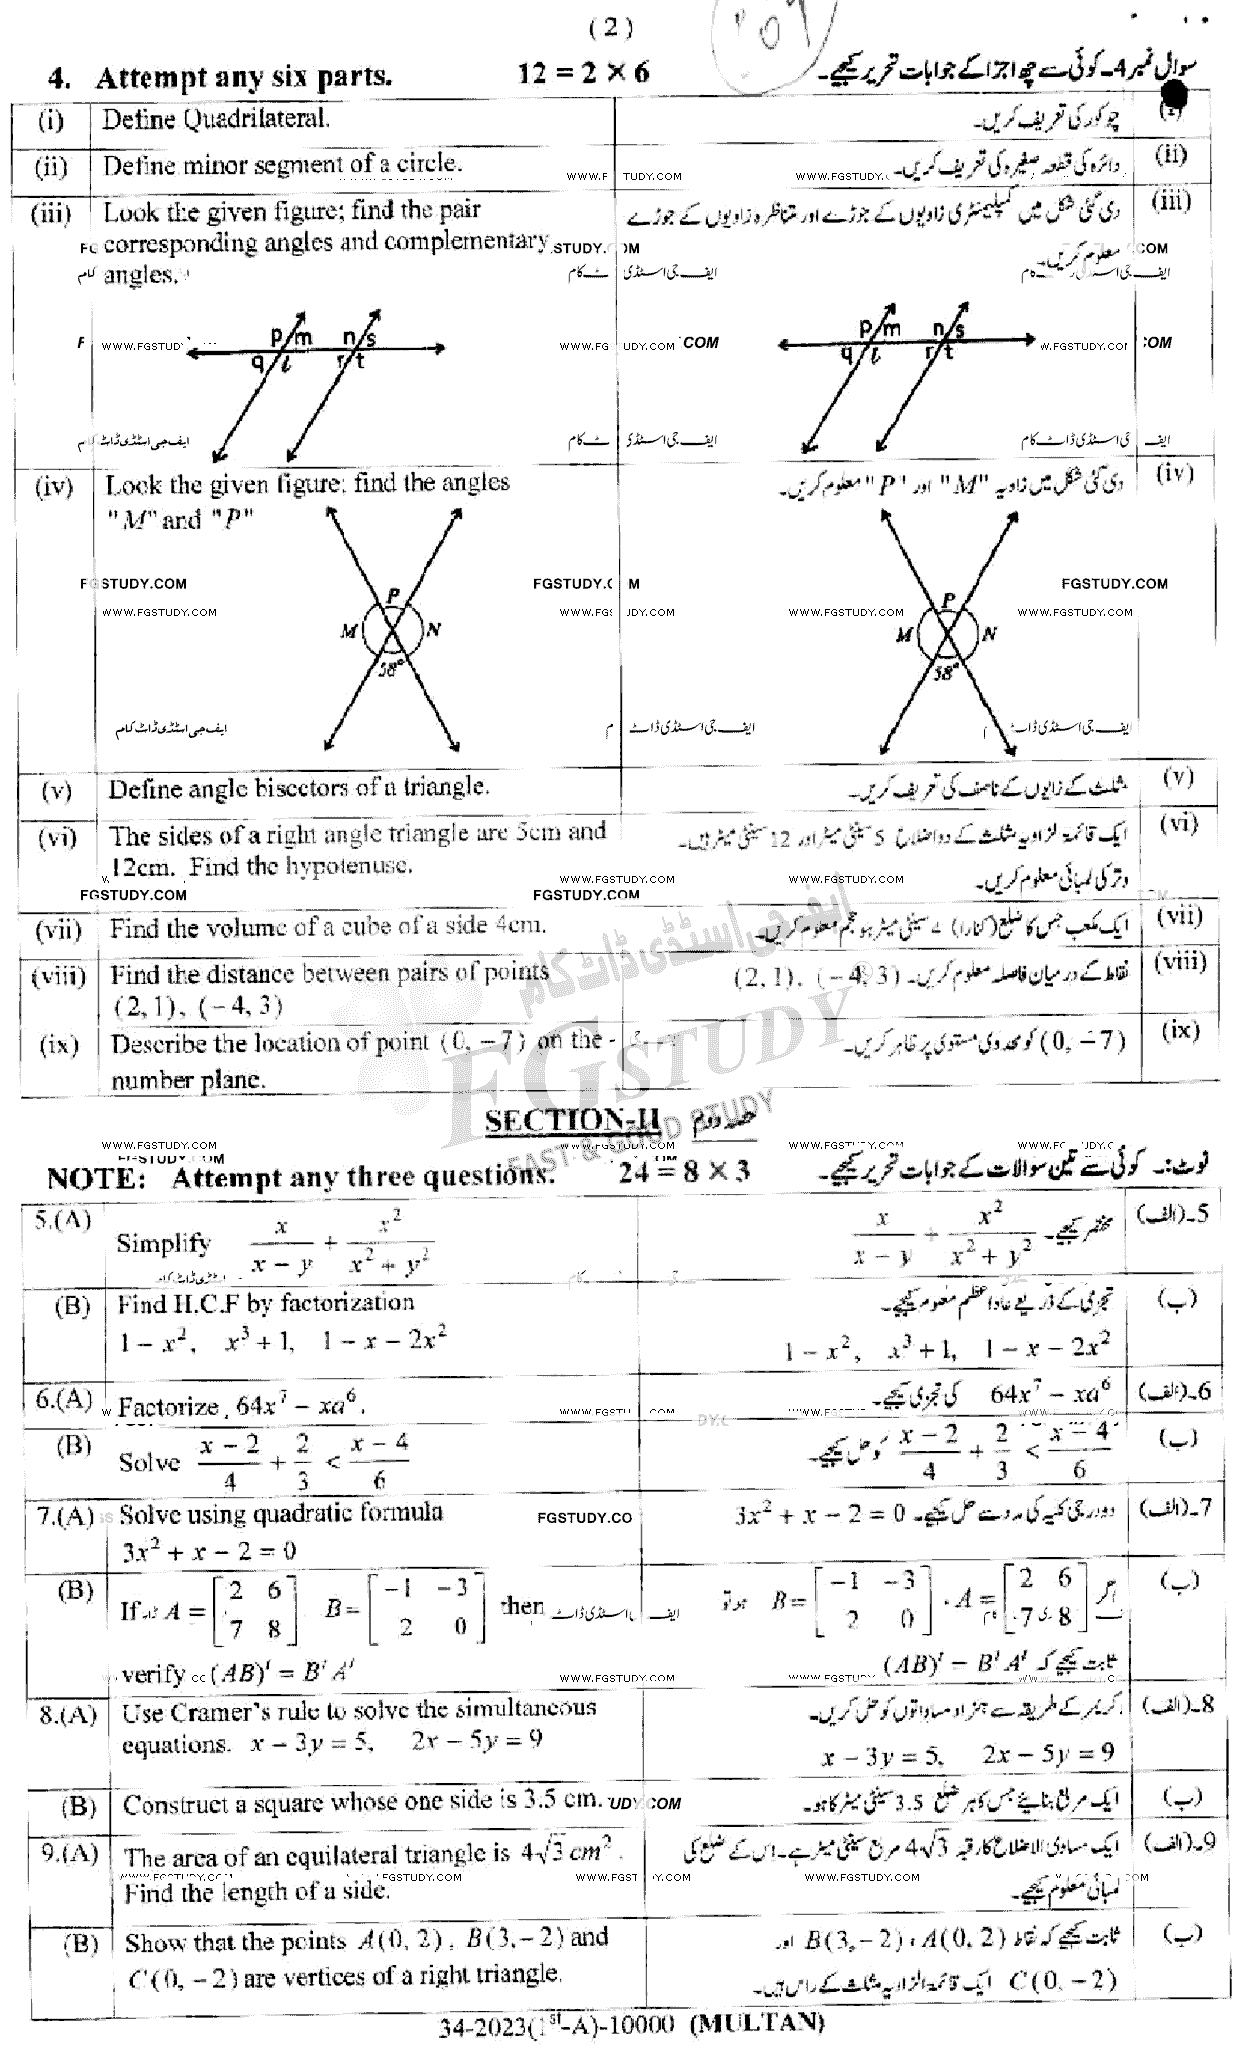 (2)
4. Attempt any six parts. 12 = 2 × 6 سوال نمبر 4۔ کوئی سے چھ اجزا کے جوابات تحریر کیجیے۔
(i) Define Quadrilateral. چوکور کی تعریف کریں۔ (i)
(ii) Define minor segment of a circle. دائرہ کی قطعہ صغیرہ کی تعریف کریں۔ (ii)
(iii) Look the given figure; find the pair دی گئی شکل میں کمپلیمنٹری زاویوں کے جوڑے اور متناظرہ زاویوں کے جوڑے (iii)
corresponding angles and complementary معلوم کریں۔
angles.
p m n s p m n s
q l r t q l r t
(iv) Look the given figure; find the angles دی گئی شکل میں زاویہ "M" اور "P" معلوم کریں۔ (iv)
"M" and "P"
P P
M N M N
58° 58°
(v) Define angle bisectors of a triangle. مثلث کے زاویوں کے ناصف کی تعریف کریں۔ (v)
(vi) The sides of a right angle triangle are 5cm and ایک قائمۃ الزاویہ مثلث کے دو اضلاع 5 سینٹی میٹر اور 12 سینٹی میٹر ہیں۔ (vi)
12cm. Find the hypotenuse. وتر کی لمبائی معلوم کریں۔
WWW.FGSTUDY.COM
FGSTUDY.COM
(vii) Find the volume of a cube of a side 4cm. ایک مکعب جس کا ضلع (کنارا) 4 سینٹی میٹر ہو حجم معلوم کریں۔ (vii)
(viii) Find the distance between pairs of points نقاط کے درمیان فاصلہ معلوم کریں۔ (2, 1), (−4, 3) (viii)
(2, 1), (−4, 3)
(ix) Describe the location of point (0, −7) on the (0, −7) کو محددی مستوی پر ظاہر کریں۔ (ix)
number plane.
ایف جی اسٹڈی ڈاٹ کام
FGSTUDY
FAST & GOOD STUDY
SECTION-II حصہ دوم
NOTE: Attempt any three questions. 24 = 8 × 3 نوٹ:۔ کوئی سے تین سوالات کے جوابات تحریر کیجیے۔
5.(A) Simplify x/(x − y) + x²/(x² + y²) مختصر کیجیے۔ x/(x − y) + x²/(x² + y²) 5۔(الف)
(B) Find H.C.F by factorization تجزی کے ذریعے عاد اعظم معلوم کیجیے۔ (ب)
1 − x², x³ + 1, 1 − x − 2x² 1 − x², x³ + 1, 1 − x − 2x²
6.(A) Factorize, 64x⁷ − xa⁶. 64x⁷ − xa⁶ کی تجزی کیجیے۔ 6۔(الف)
(B) Solve (x − 2)/4 + 2/3 < (x − 4)/6 (x − 2)/4 + 2/3 < (x − 4)/6 کو حل کیجیے۔ (ب)
7.(A) Solve using quadratic formula دو درجی کلیہ کی مدد سے حل کیجیے۔ 3x² + x − 2 = 0 7۔(الف)
3x² + x − 2 = 0
(B) If A = [2 6; 7 8] B = [−1 −3; 2 0] then اگر A = [2 6; 7 8] ، B = [−1 −3; 2 0] ہو تو (ب)
verify (AB)ᵗ = Bᵗ Aᵗ ثابت کیجیے کہ (AB)ᵗ = Bᵗ Aᵗ
8.(A) Use Cramer's rule to solve the simultaneous کریمر کے طریقہ سے ہمزاد مساواتوں کو حل کریں۔ 8۔(الف)
equations. x − 3y = 5, 2x − 5y = 9 x − 3y = 5, 2x − 5y = 9
(B) Construct a square whose one side is 3.5 cm. ایک مربع بنائیے جس کا ہر ضلع 3.5 سینٹی میٹر کا ہو۔ (ب)
9.(A) The area of an equilateral triangle is 4√3 cm². ایک مساوی الاضلاع کا رقبہ 4√3 مربع سینٹی میٹر ہے۔ اس کے ضلع کی 9۔(الف)
Find the length of a side. لمبائی معلوم کیجیے۔
(B) Show that the points A(0, 2), B(3, −2) and ثابت کیجیے کہ نقاط A(0, 2) ، B(3, −2) اور (ب)
C(0, −2) are vertices of a right triangle. C(0, −2) ایک قائمۃ الزاویہ مثلث کے راس ہیں۔
34-2023(1st-A)-10000 (MULTAN)